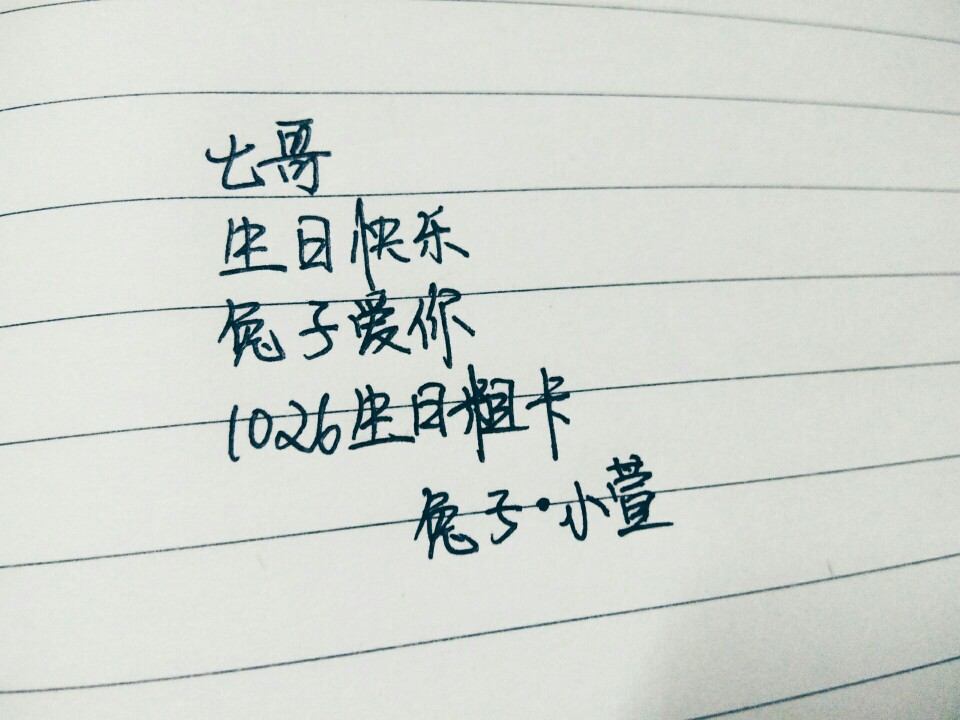 七哥
生日快乐
兔子爱你
1026生日粗卡
兔子·小萱